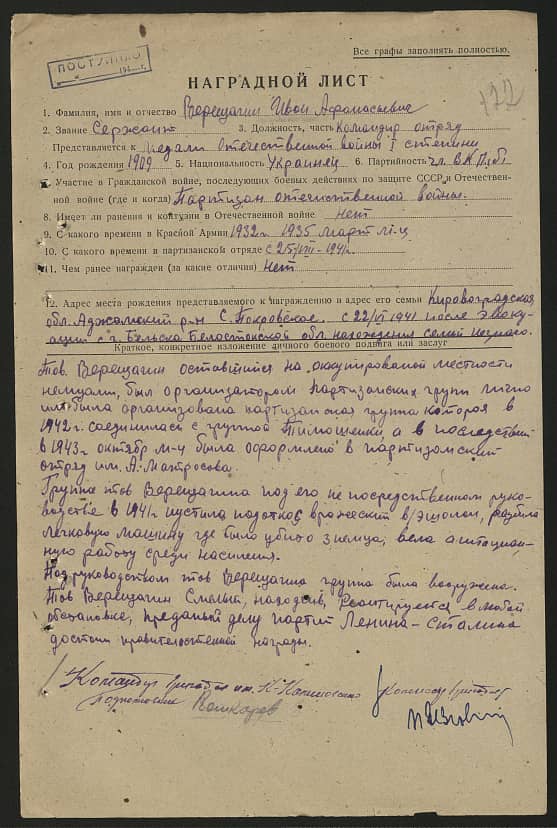 ПОСТУПИЛО
Все графы заполнять полностью.
122
НАГРАДНОЙ ЛИСТ
1. Фамилия, имя и отчество Верещагин Иван Афанасьевич
2. Звание Сержант 3. Должность, часть Командир отряд
Представляется к медали Отечественной войны I степени
4. Год рождения 1909 5. Национальность Украинец 6. Партийность чл. ВКП(б)
7. Участие в Гражданской войне, последующих боевых действиях по защите СССР и Отечествен-
ной войне (где и когда) Партизан отечественной войны.
8. Имеет ли ранения и контузии в Отечественной войне нет
9. С какого времени в Красной Армии 1932г 1935 март м-ц
10. С какого времени в партизанском отряде с 25/VIII-1941г.
11. Чем ранее награжден (за какие отличия) нет
12. Адрес места рождения представляемого к награждению и адрес его семьи Кировоградская
обл. Аджамский р-н С. Покровское. с 22/VI 1941 после эваку-
ации с г. Бельска Белостокской обл. нахождения семьи
Краткое, конкретное изложение личного боевого подвига или заслуг
Тов. Верещагин оставшийся на оккупированой местности
немцами, был организатором партизанских групп лично
им была организована партизанская группа которая в
1942г. соединилась с группой Тимошенко, а в последствии
в 1943г октябр м-ц была оформлено в партизанский
отряд им. А. Матросова.
Группа тов Верещагина под его не посредственном руко-
водстве в 1941г пустила подоткос вражеский в/эшелон, разбила
легковую машину где было убито 3 немца, вела агитацион-
ную работу среди населения.
Под руководством тов Верещагина группа была вооружена.
Тов Верещагин Смелый, находчив, реонтируется в любой
обстановке, преданый делу партии Ленина-Сталина
достоин правительственной награды.
Командир бригады им. К-Калиновского Комиссар бригады
Подполковник